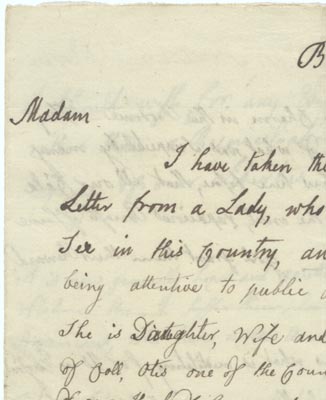 B
Madam
I have taken the
Letter from a Lady, who
See in this Country, an
being attentive to public
She is Daughter, Wife and
of Coll, Otis one of the Coun